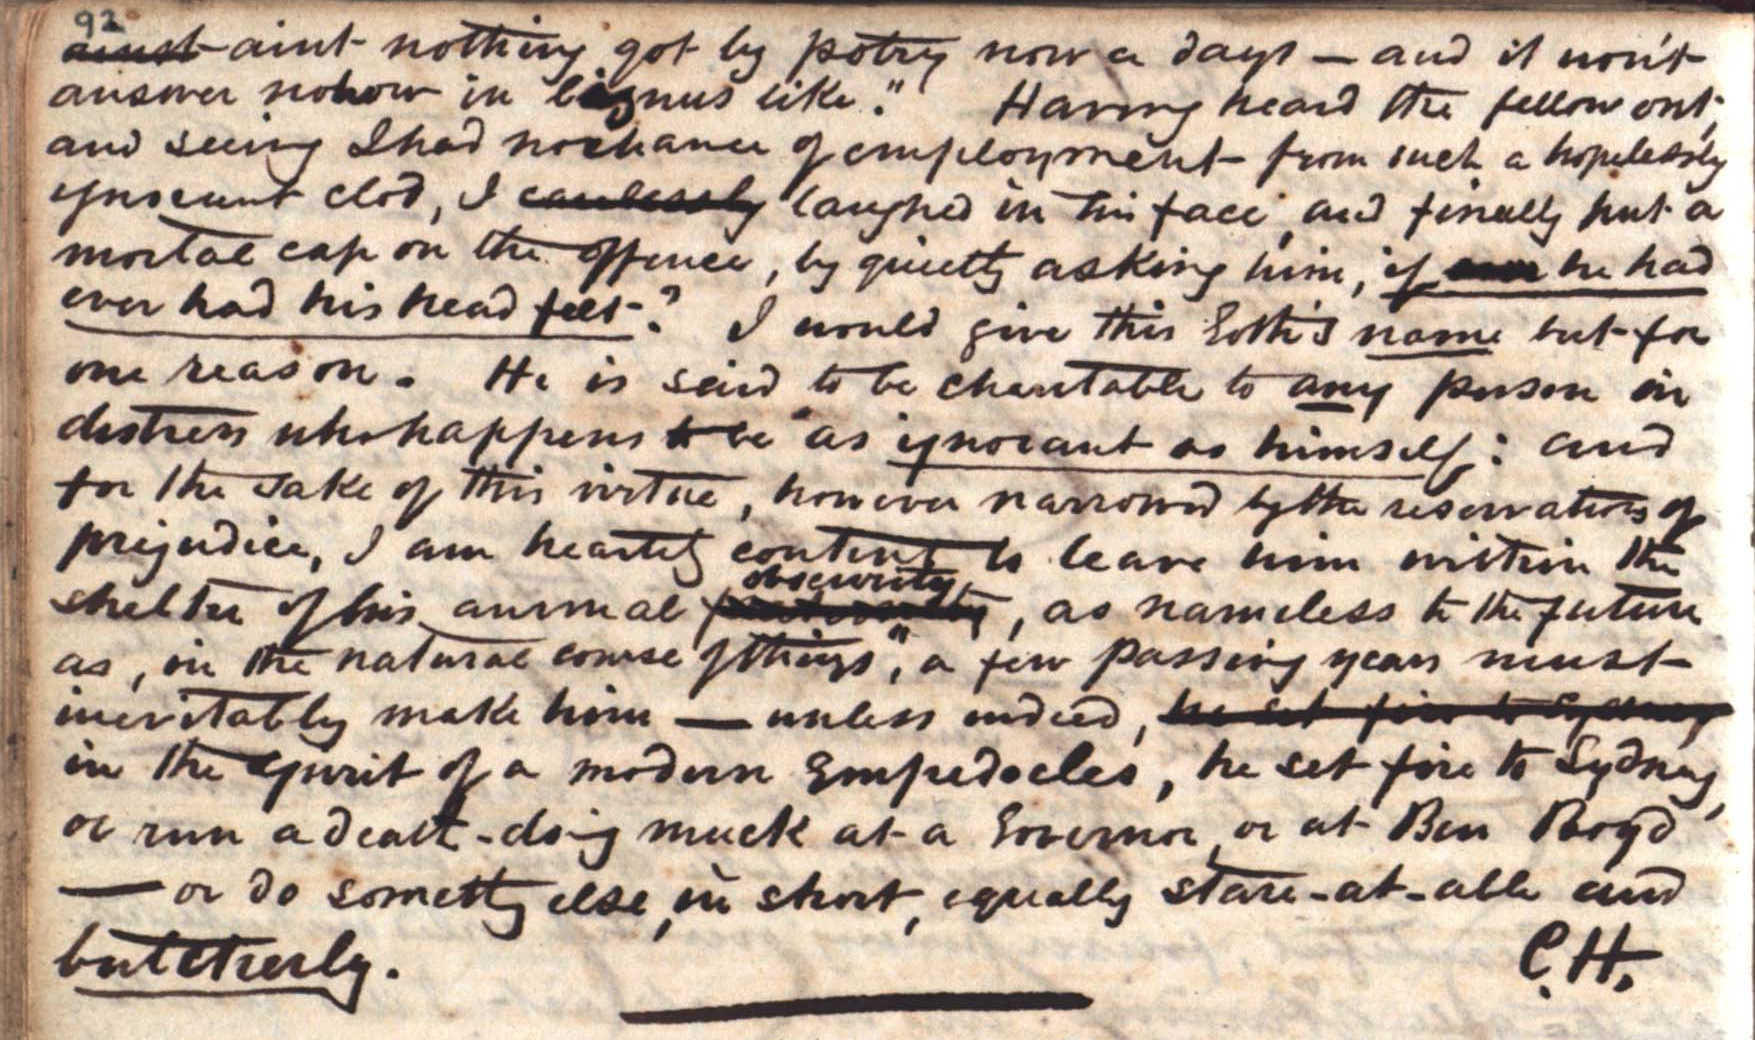 92
ainst aint nothing got by potry now a days — and it won't
answer nohow in biznus like." Having heard the fellow out,
and seeing I had no chance of employment from such a hopelessly
ignorant clod, I carelessly laughed in his face, and finally put a
mortal cap on the offence, by quietly asking him, if ever he had
ever had his head felt? I would give this Goth's name but for
one reason. He is said to be charitable to any person in
distress who happens to be "as ignorant as himself: and
for the sake of this virtue, however narrowed by the reservations of
prejudice, I am heartily content to leave him within the
obscurity
shelter of his animal , as nameless to the future
as, in the natural course of things", a few passing years must
inevitably make him — unless indeed, he set fire to Sydney
in the spirit of a modern Empedocles, he set fire to Sydney,
or run a death-doing muck at a Governor, or at Ben Boyd
— or do something else, in short, equally stare-at-able and
butcherly. C.H.